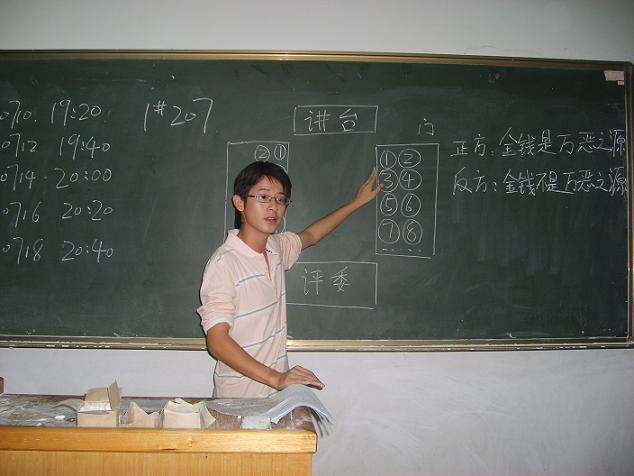 0710. 19:20
0712 19:40
0714. 20:00
0716 20:20
0718 20:40
1#207
讲台
门
② ①
① ②
③ ④
⑤ ⑥
⑦ ⑧
评委
正方：金钱是万恶之源
反方：金钱不是万恶之源